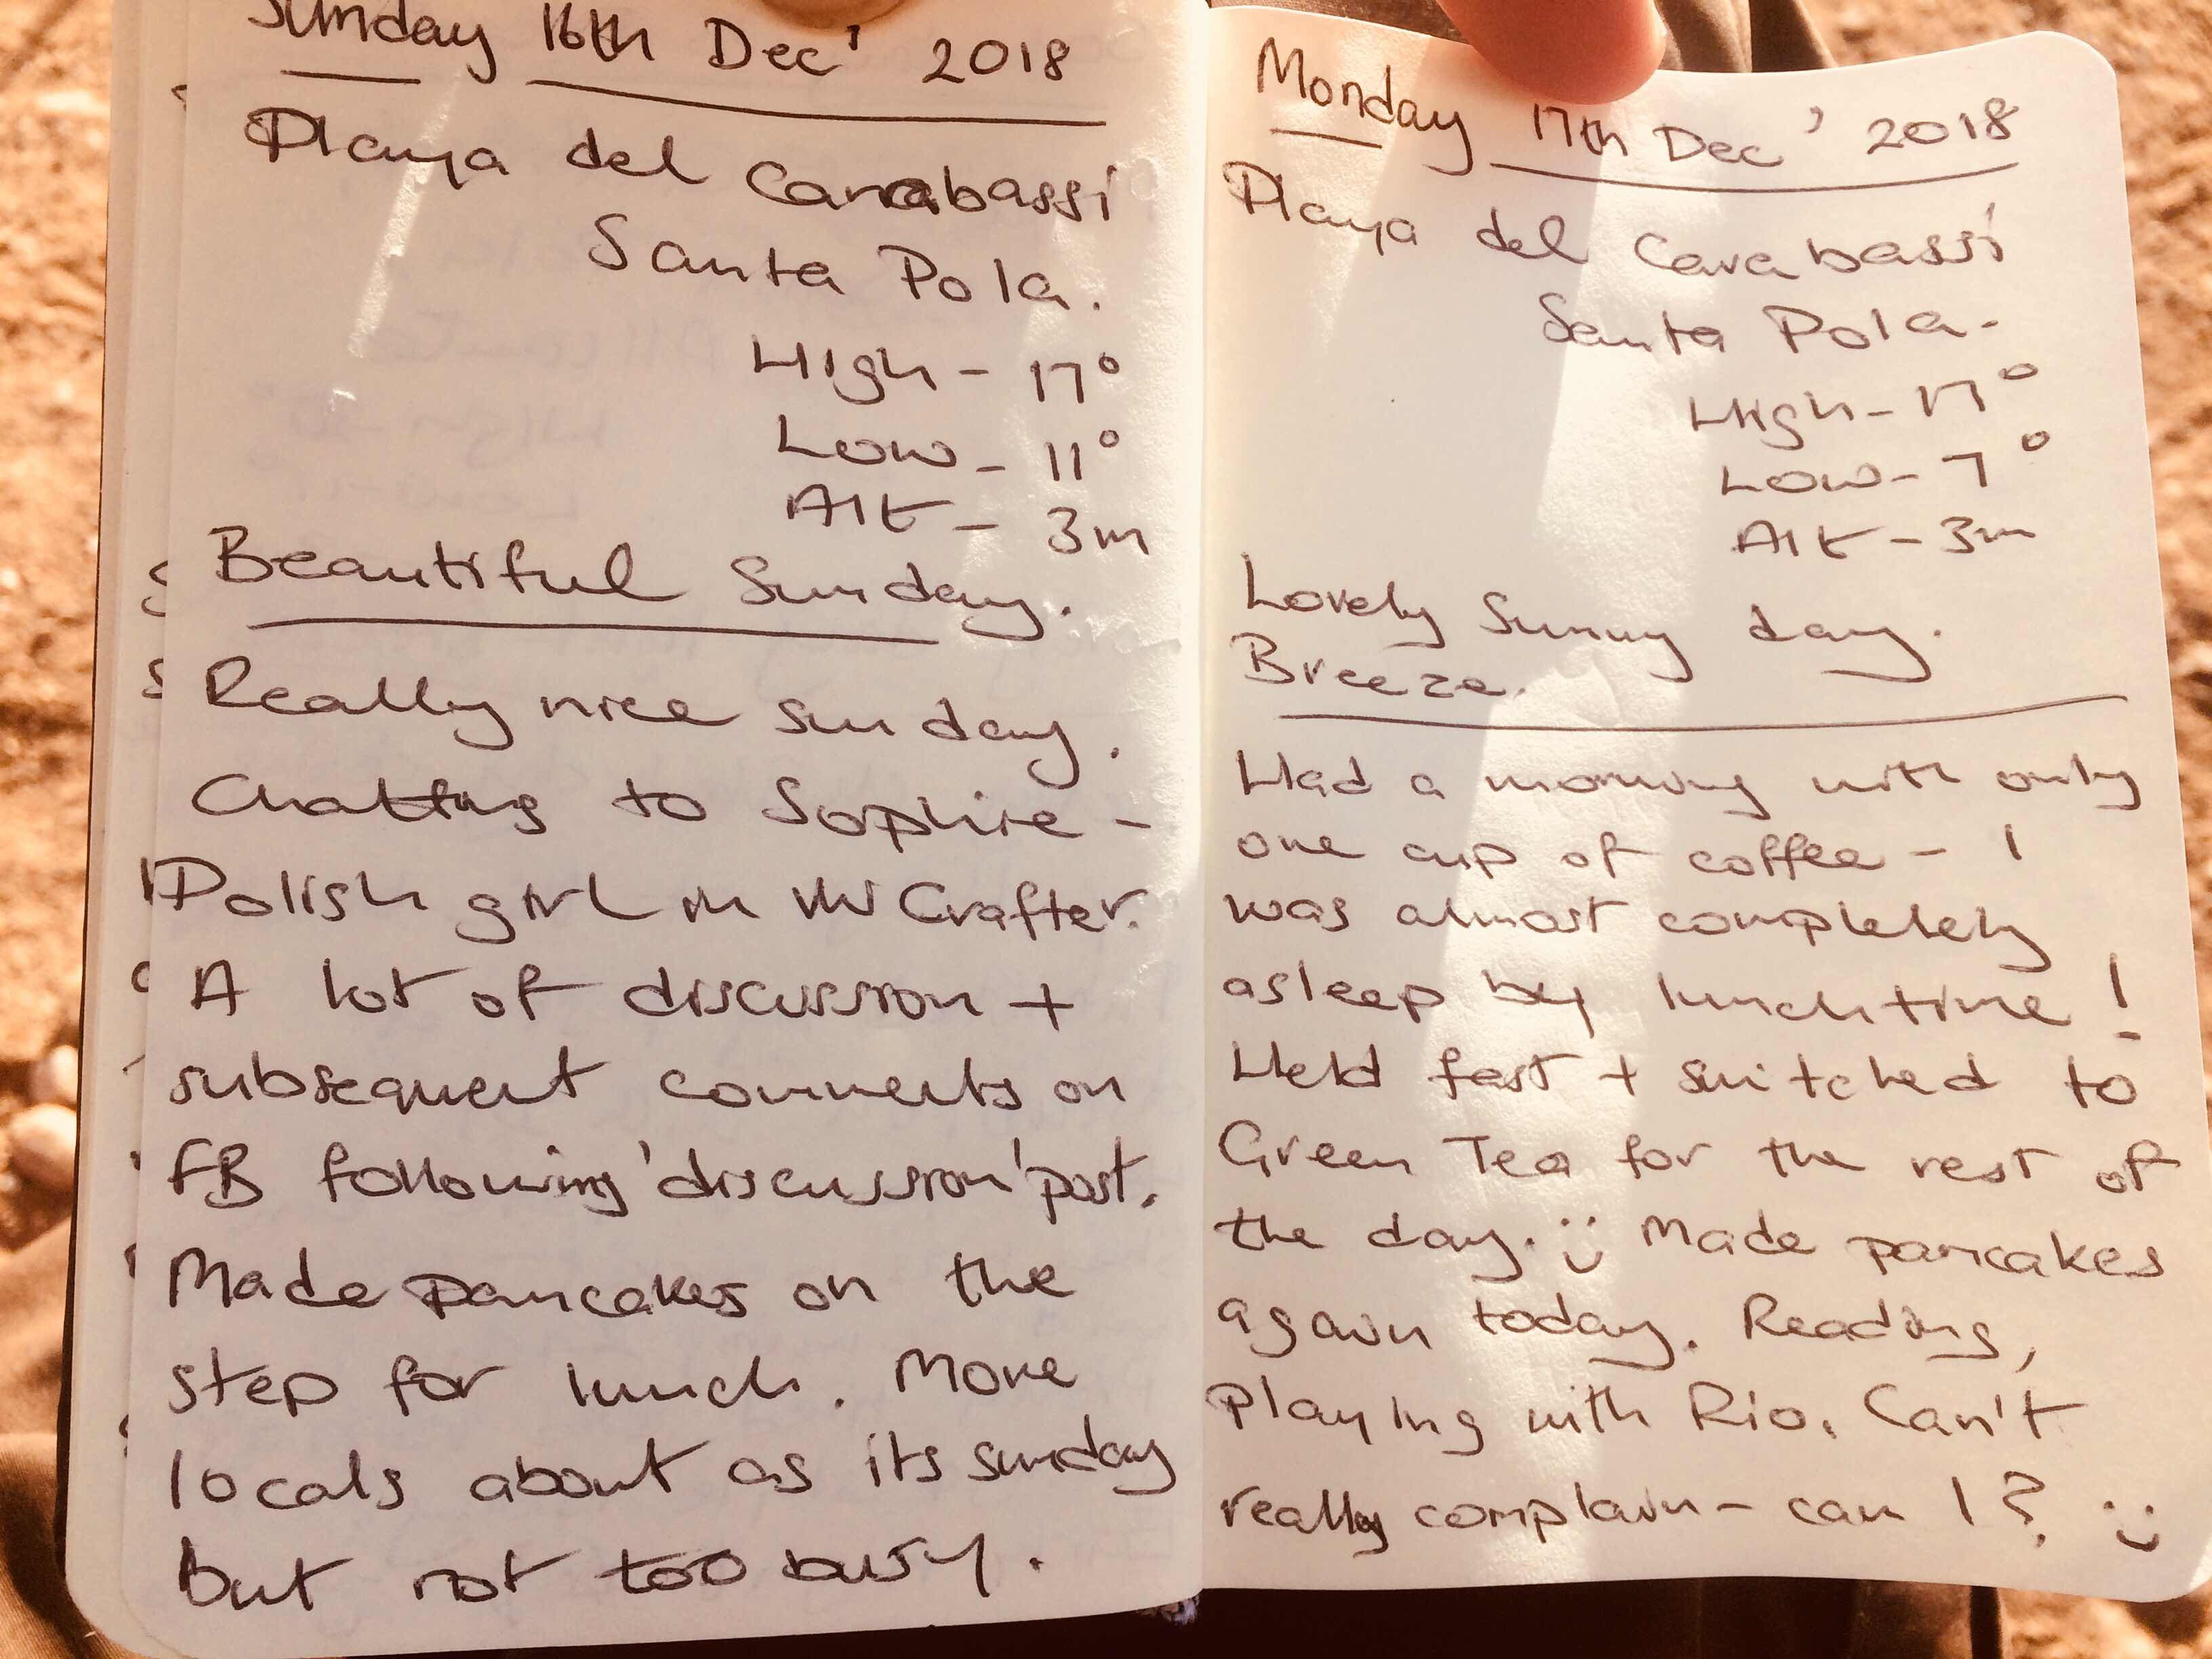 Sunday 16th Dec' 2018
Playa del Carabassi
Santa Pola.
High - 17°
Low - 11°
Alt - 3m
Beautiful Sunday.
Really nice sunday.
Chatting to Sophie -
Polish girl in VW Crafter.
A lot of discussion +
subsequent comments on
FB following 'discussion' post.
Made pancakes on the
step for lunch. More
locals about as its sunday
but not too busy.
Monday 17th Dec' 2018
Playa del Carabassi
Santa Pola.
High - 17°
Low - 7°
Alt - 3m
Lovely Sunny day.
Breeze.
Had a morning with only
one cup of coffee - I
was almost completely
asleep by lunchtime!
Held fast + switched to
Green Tea for the rest of
the day. :) Made pancakes
again today. Reading,
Playing with Rio. Can't
really complain - can I? :)